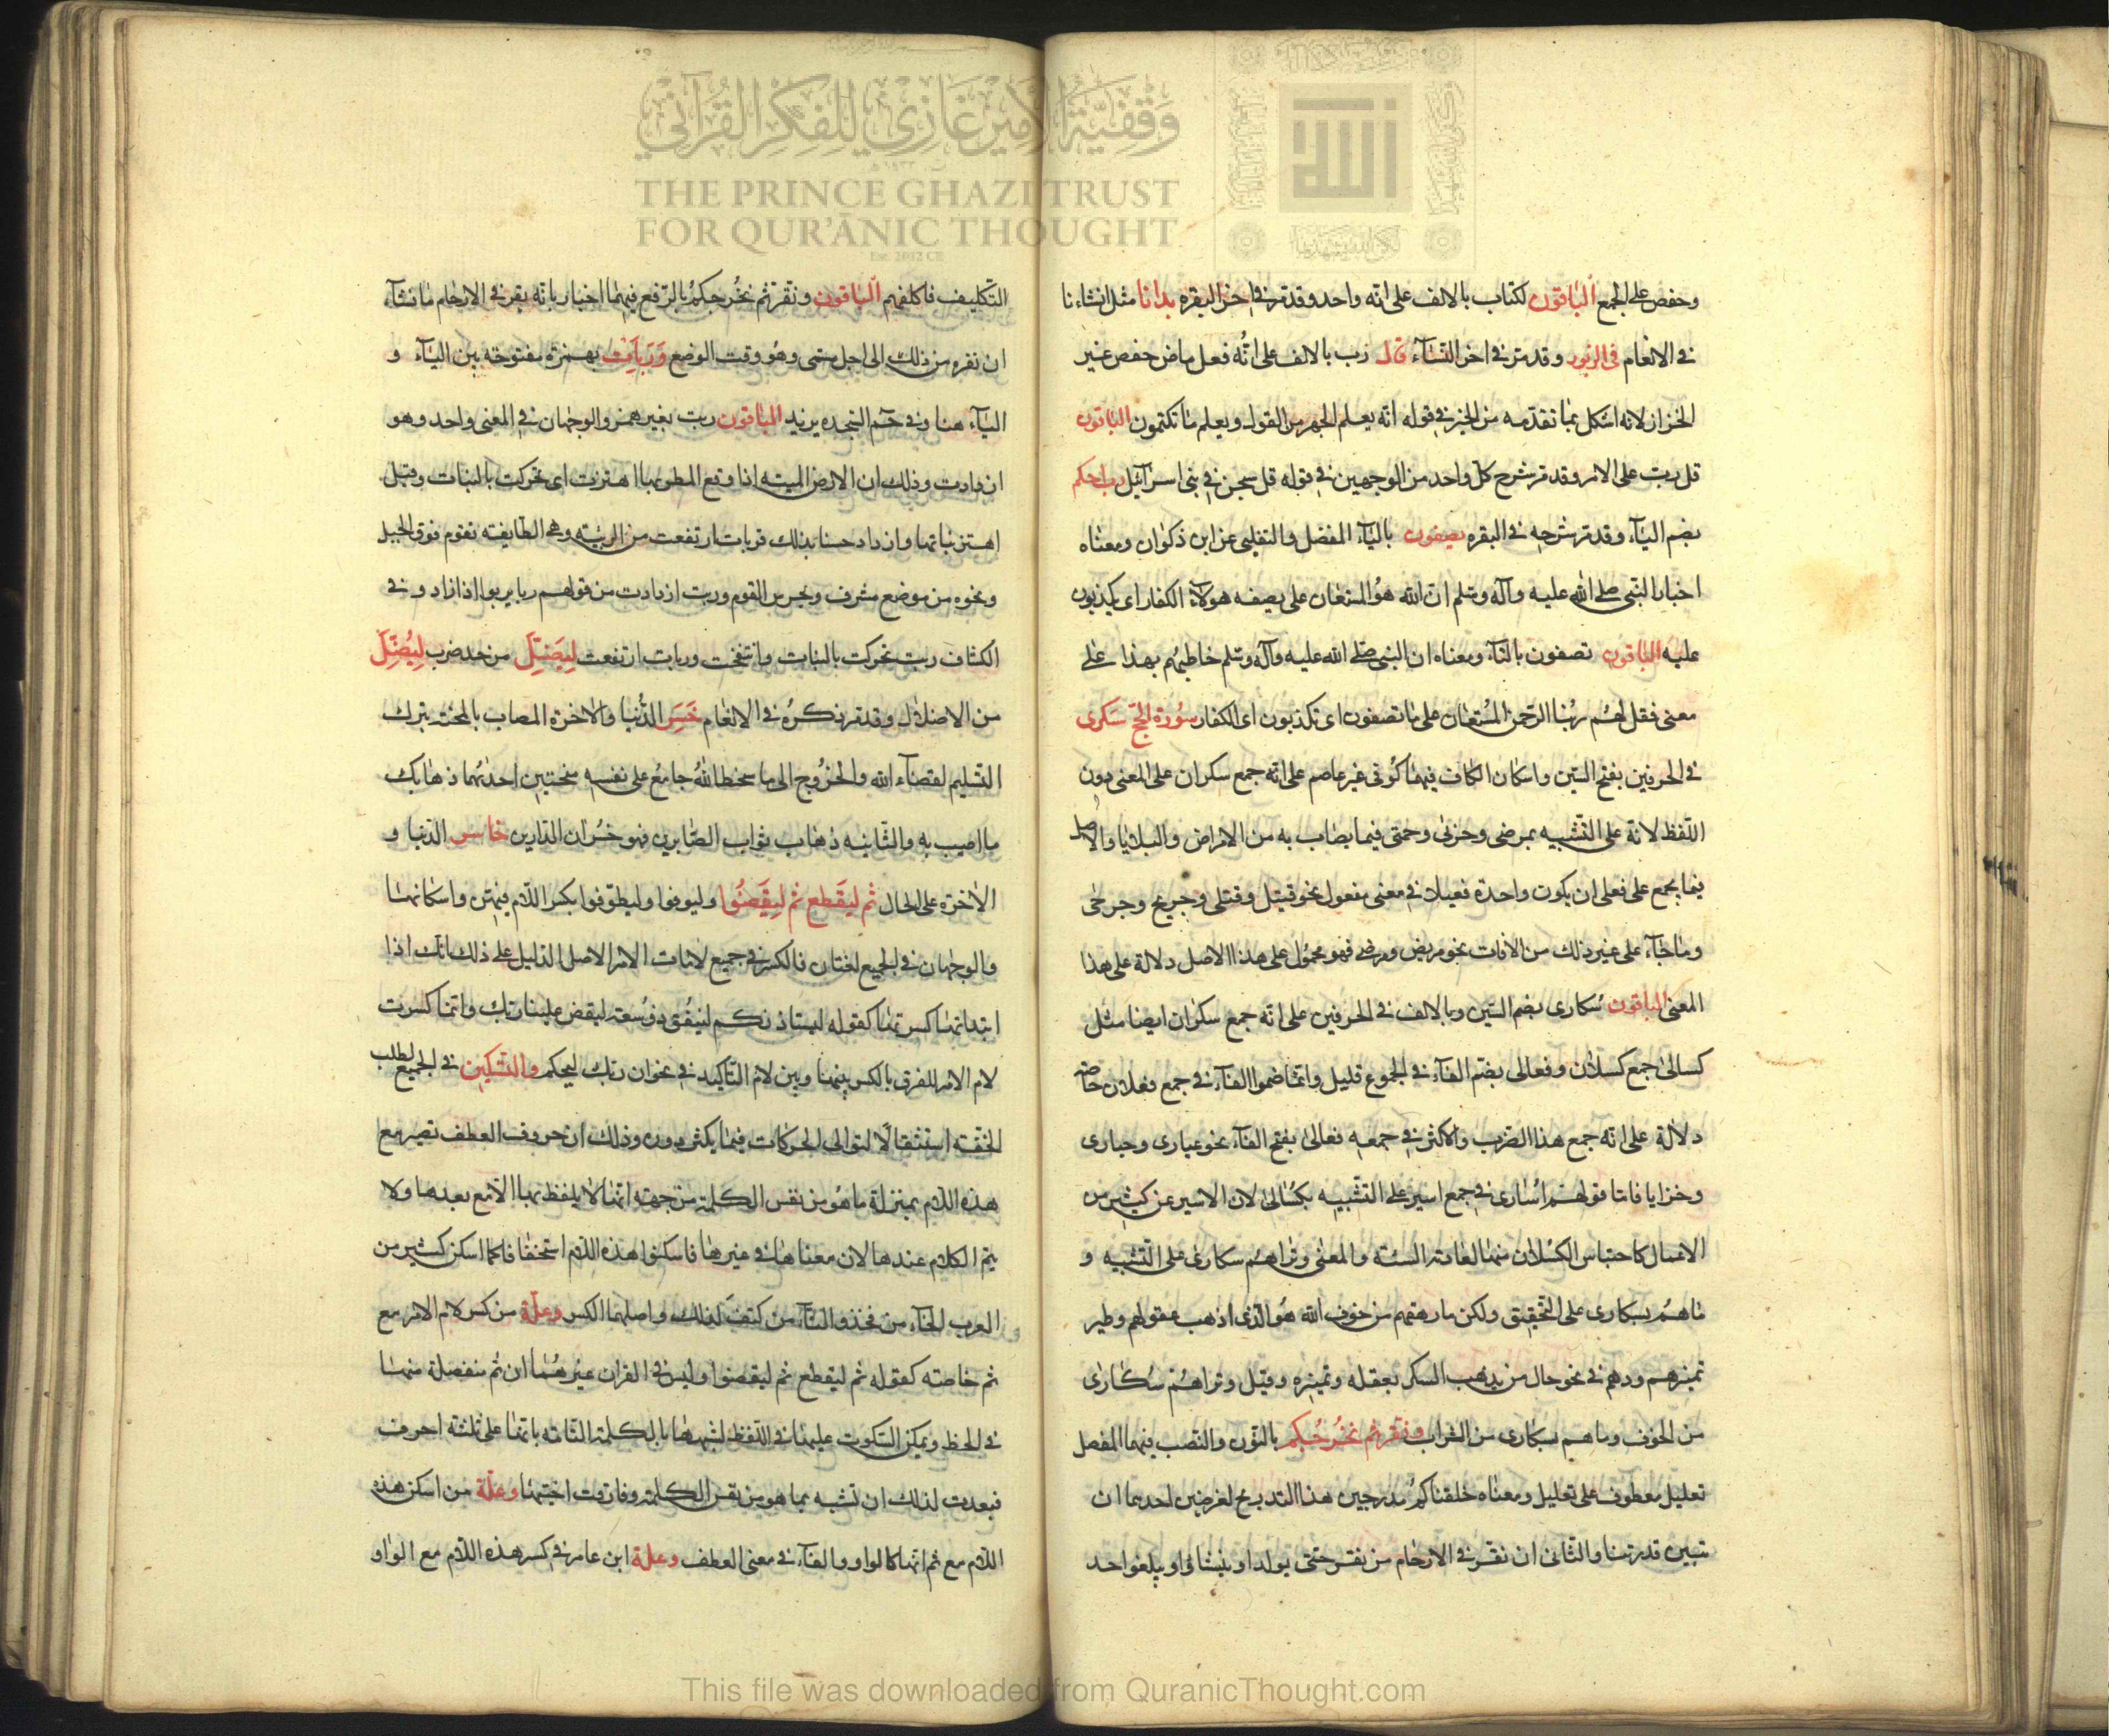 وقفية الأمير غازي للفكر القرآني
THE PRINCE GHAZI TRUST
FOR QUR'ĀNIC THOUGHT
وحفص على الجمع الباقون لكتاب بالالف على انه واحد وقد مر في اخر البقره بدانا مثل انشاءنا
في الانعام في الزبور وقد مر في اخر النساء قال رب بالالف على انه فعل ماض حفص غير
الخزاز لانه اشكل بما تقدمه من الخبر في قوله انه يعلم الجهر من القول ويعلم ما تكتمون الباقون
قل رب على الامر وقد مر شرح كل واحد من الوجهين في قوله قل سبحن في بنى اسرآئيل رب احكم
بضم الياء وقد مر شرحه في البقره يصفون بالياء المفضل والتغلبى عن ابن ذكوان ومعناه
اخبار النبى صلى الله عليه وآله وسلم ان الله هو المستعان على يصفه هولاء الكفار اى يكذبون
عليه الباقون تصفون بالتاء ومعناه ان النبى صلى الله عليه وآله وسلم خاطبهم بهذا على
معنى فقل لهم ربنا الرحمن المستعان على ما تصفون اى تكذبون اى الكفار سورة الحج سكرى
في الحرفين بفتح السين واسكان الكاف فيهما كوفى غير عاصم على انه جمع سكران على المعنى دون
اللفظ لانة على التشبيه بمرضى وحزنى وحمقى فيما يصاب به من الامراض والبلايا والاصل
فيما يجمع على فعلى ان يكون واحدة فعيلا في معنى مفعول نحو قتيل وقتلى وجريح وجرحى
وما جاء على غير ذلك من الافات نحو مريض ومرضى فهو محمول على هذا الاصل دلالة على هذا
المعنى الباقون سكارى بضم السين وبالالف في الحرفين على انه جمع سكران ايضا مثل
كسالى جمع كسلان وفعالى بضم الفاء في الجموع قليل وانما ضموا الفاء في جمع فعلان خاصه
دلالة على انه جمع هذا الضرب والاكثر في جمعه فعالى بفتح الفاء نحو عيارى وحبارى
وخزايا فاما قولهم اسارى في جمع اسير على التشبيه بكسالى لان الاسير عن كثير من
الاعمال كاحتباس الكسلان عنها لعادته السيئه والمعنى وتراهم سكارى على التشبيه و
ما هم بسكارى على التحقيق ولكن ما رهقهم من خوف الله هو الذى اذهب عقولهم وطير
تميزهم وردهم في نحو حال من يذهب السكر بعقله وتميزه وقيل وتراهم سكارى
من الخوف وما هم بسكارى من الشراب ونقر ثم نخرجكم بالنون والنصب فيهما المفضل
تعليل معطوف على تعليل ومعناه خلقناكم مدرجين هذا التدريج لغرضين احدهما ان
تبين قدرتنا والثانى ان نقر في الارحام من نقر حتى يولد او ينشاؤا ويبلغوا حد
التكليف فاكلفهم الباقون ونقر ثم نخرجكم بالرفع فيهما اخبار بانه يقر في الارحام ما نشاء
ان نقره من ذلك الى اجل مسمى وهو وقت الوضع وربأت بهمزة مفتوحه بين الباء و
التاء هنا وفي حم السجده يزيد الباقون ربت بغير همز والوجهان في المعنى واحد وهو
ان زادت وذلك ان الارض الميته اذا وقع المطر بها اهتزت اى تحركت بالنبات وقيل
اهتز نباتها وازداد حسنا بذلك فربات ارتفعت من الربيئه وهى الطايفه تقوم فوق الجبل
ونحوه من موضع مشرف ويحرس القوم وربت ازدادت من قولهم ربا يربوا اذا زاد وفي
الكشاف ربت تحركت بالنبات وانتفخت وربات ارتفعت ليضل من حد ضرب ليضل
من الاضلال وقد مر ذكره في الانعام خسر الدنيا والاخرة المصاب بالمحنه بترك
التسليم لقضاء الله والخروج الى ما سخط الله جامع على نفسه محنتين احدهما ذهاب
ما اصيب به والثانيه ذهاب ثواب الصابرين فهو خسران الدارين خاسر الدنيا و
الاخره على الحال ثم ليقطع ثم ليقضوا وليوفوا وليطوفوا بكسر اللام فيهن واسكانها
والوجهان في الجميع لغتان فالكسر في جميع لامات الامر الاصل الدليل على ذلك انك اذا
ابتداتها كسرتها كقوله ليستاذنكم لينفق ذو سعته ليقض علينا ربك وانما كسرت
لام الامر للفرق بالكسر بينها وبين لام التاكيد في نحو ان ربك ليحكم والتسكين في الجميع لطلب
الخفه استثقالا لتوالى الحركات فيما يكثر دوره وذلك ان حروف العطف تصير مع
هذه اللام بمنزلة ما هو من نفس الكلمة من جهة انها لا يلفظ بها الا مع بعدها ولا
يتم الكلام عندها لان معناها في غيرها فاسكنوا هذه اللام استخفافا كما اسكن كثير من
العرب الخاء من فخذ والتاء من كتف لذلك واصلهما الكسر وعلة من كسر لام الامر مع
ثم خاصة كقوله ثم ليقطع ثم ليقضوا وليس في القران غيرهما ان ثم منفصلة منها
في الخط ويمكن السكوت عليها في اللفظ لشبهها بالكلمة التامه بانها على ثلثة احرف
فبعدت لذلك ان تشبه بما هو من نفس الكلمة وفارقت اختيها وعلة من اسكن هذه
اللام مع ثم انها كالواو والفاء في معنى العطف وعلة ابن عامر في كسر هذه اللام مع الواو
This file was downloaded from QuranicThought.com